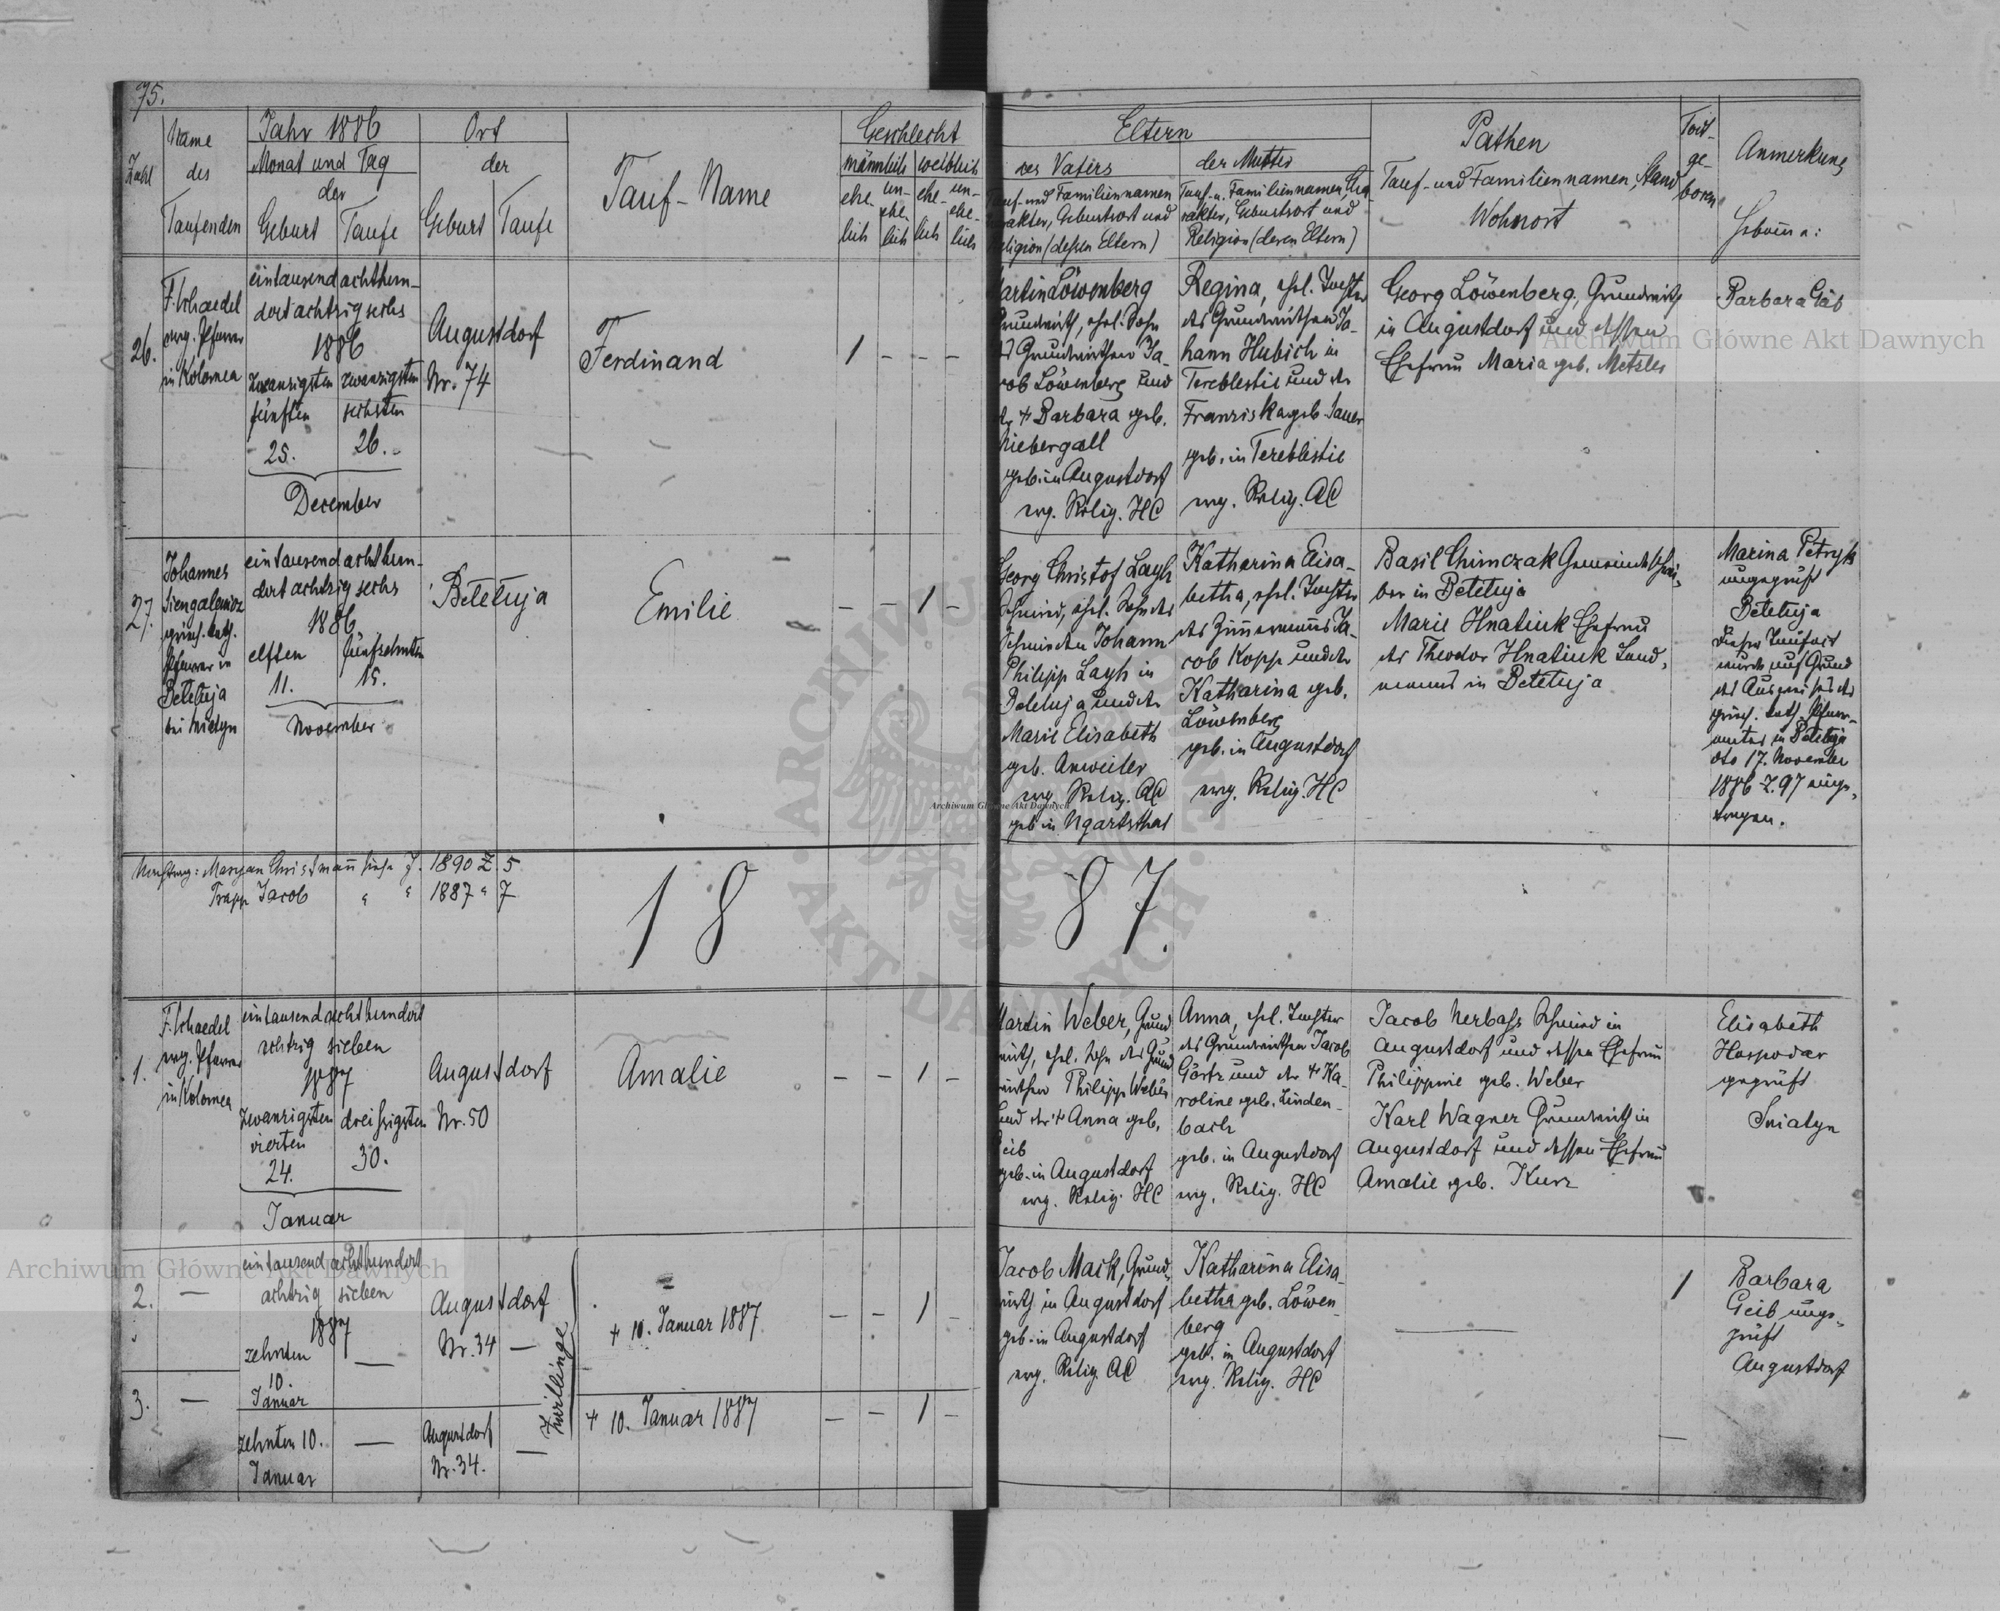 75.
Zahl
Name
des
Taufenden
Jahr 1886
Monat und Tag
der
Geburt
Taufe
Ort
der
Geburt
Taufe
Tauf-Name
Geschlecht
männlich
weiblich
ehe-
lich
un-
ehe-
lich
ehe-
lich
un-
ehe-
lich
Eltern
des Vaters
Tauf- und Familiennamen
Religion (dessen Eltern)
der Mutter
Tauf- u. Familiennamen, Cha-
rakter, Geburtsort und
Religion (deren Eltern)
Pathen
Tauf- und Familiennamen, Stand
Wohnort
Todt-
ge-
boren
Anmerkung
26.
F. Schaedel
evg. Pfarrer
in Kolomea
eintausend achthun-
dert achtzig sechs
1886
zwanzigsten
fünften
25.
zwanzigsten
sechsten
26.
December
Augustdorf
Nr. 74
Ferdinand
1 - - -
Martin Löwenberg
Grundwirth, ehel. Sohn
des Grundwirthen Ja-
cob Löwenberg und
der + Barbara geb.
Niebergall
geb. in Augustdorf
evg. Relig. HC
Regina, ehel. Tochter
des Grundwirthen Jo-
hann Hubich in
Tereblestie und der
Franziska geb. Sauer
geb. in Tereblestie
evg. Relig. AC
Georg Löwenberg, Grundwirth
in Augustdorf und dessen
Ehefrau Maria geb. Metzler
Barbara
27.
Johannes
griech. kath.
Pfarrer in
Beteluja
eintausend achthun-
dert achtzig sechs
1886
elften
11.
fünfzehnten
15.
November
Beteluja
Emilie
- - 1 -
Georg Christof Layh
Schmied, ehel. Sohn des
Schmieden Johann
Philipp Layh in
Beleluja und der
Marie Elisabeth
geb. Anweiler
evg. Relig. AC
geb. in Ugartsthal
Katharina Elisa-
betha, ehel. Tochter
des Zimmermanns Ja-
cob Kopp und der
Katharina geb.
Löwenberg
geb. in Augustdorf
evg. Relig. HC
Basil Chimczak Gemeindeschrei-
ber in Beteluja
Marie Hnatiuk Ehefrau
des Theodor Hnatiuk Land-
manns in Beteluja
Marina Petryk
ungeprüft
Beteluja
Dieser Taufact
wurde auf Grund
des Ausweises des
griech. kath. Pfarr-
amtes in Beteluja
dto 17. November
1886 Z. 97 einge-
tragen.
Nachtrag: Maryan Christmann siehe J. 1890 Z. 5
Trapp Jacob " " 1887 " 7
1887.
1.
F. Schaedel
evg. Pfarrer
in Kolomea
eintausend achthundert
achtzig sieben
1887
zwanzigsten
vierten
24.
dreißigsten
30.
Januar
Augustdorf
Nr. 50
Amalie
- - 1 -
Martin Weber, Grund-
wirth, ehel. Sohn des Grund-
wirthen Philipp Weber
und der + Anna geb.
Geib
geb. in Augustdorf
evg. Relig. HC
Anna, ehel. Tochter
des Grundwirthen Jacob
Görtz und der + Ka-
roline geb. Linden-
bach
geb. in Augustdorf
evg. Relig. HC
Jacob Nerbass Schmied in
Augustdorf und dessen Ehefrau
Philippine geb. Weber
Karl Wagner Grundwirth in
Augustdorf und dessen Ehefrau
Amalie geb. Kurz
Elisabeth
Hospodar
geprüft
Sniatyn
2.
-
eintausend achthundert
achtzig sieben
1887
zehnten
10
Januar
-
Augustdorf
Nr. 34 -
Zwillinge
+ 10. Januar 1887
- - 1 -
Jacob Mack, Grund-
wirth in Augustdorf
geb. in Augustdorf
evg. Relig. AC
Katharina Elisa-
betha geb. Löwen-
berg
geb. in Augustdorf
evg. Relig. HC
1
Barbara
Geib unge-
prüft
Augustdorf
3.
-
zehnten 10.
Januar
-
Augustdorf
Nr. 34.
-
+ 10. Januar 1887
- - 1 -
Archiwum Główne Akt Dawnych
Archiwum Główne Akt Dawnych
Archiwum Główne Akt Dawnych